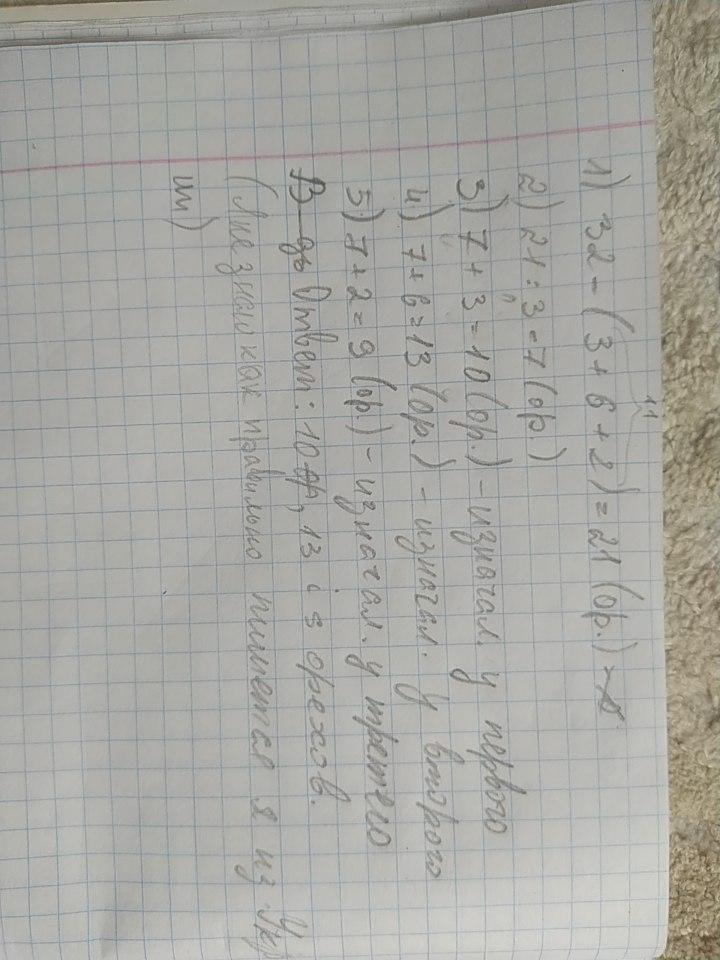 11
1) 32 - (3 + 6 + 2) = 21 (ор.) -
2) 21 : 3 = 7 (ор.)
3) 7 + 3 = 10 (ор.) - изначал. у первого
4) 7 + 6 = 13 (ор.) - изначал. у второго
5) 7 + 2 = 9 (ор.) - изначал. у третего
Ответ: 10 ор, 13 і 9 орехов.
(Я не знаю как правильно пишется я из Укр